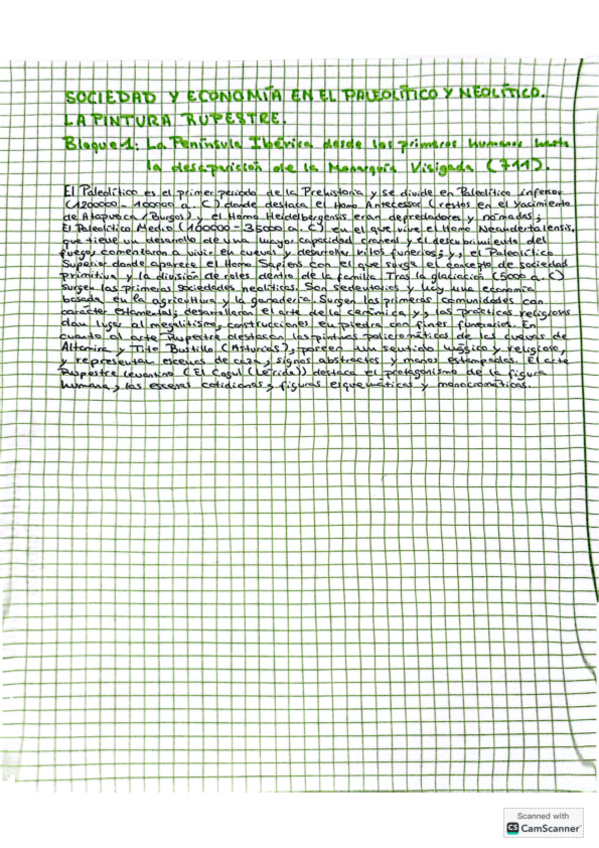 SOCIEDAD Y ECONOMÍA EN EL PALEOLÍTICO Y NEOLÍTICO.
LA PINTURA RUPESTRE.
Bloque 1: La Península Ibérica desde los primeros humanos hasta
la desaparición de la Monarquía Visigoda (711).
El Paleolítico es el primer periodo de la Prehistoria y se divide en Paleolítico inferior
(1200000 - 100000 a. C) donde destaca el Homo Antecessor (restos en el yacimiento
de Atapuerca / Burgos) y el Homo Heidelbergensis eran depredadores y nómadas;
El Paleolítico Medio (100000 - 35000 a. C) en el que vive el Homo Neandertalensis,
que tiene un desarrollo de una mayor capacidad craneal y el descubrimiento del
fuego, comenzaron a vivir en cuevas y desarrollar ritos funerios; y, el Paleolítico
Superior donde aparece el Homo Sapiens con el que surge el concepto de sociedad
primitiva y la división de roles dentro de la familia. Tras la glaciación (5000 a. C)
surgen las primeras sociedades neolíticas. Son sedentarios y hay una economía
basada en la agricultura y la ganadería. Surgen las primeras comunidades con
carácter estamental; desarrollaron el arte de la cerámica y, las prácticas religiosas
dan lugar al megalitismo, construcciones en piedra con fines funerarios. En
cuanto al arte Rupestre destacan las pinturas policromáticas de las cuevas de
Altamira y Tito Bustillo (Asturias), poseen un sentido mágico y religioso,
y representan escenas de caza, signos abstractos y manos estampadas. El arte
Rupestre Levantino (El Cogul (Lérida)) destaca el protagonismo de la figura
humana, las escenas cotidianas, figuras esquemáticas y monocromáticas.
Scanned with
CS CamScanner